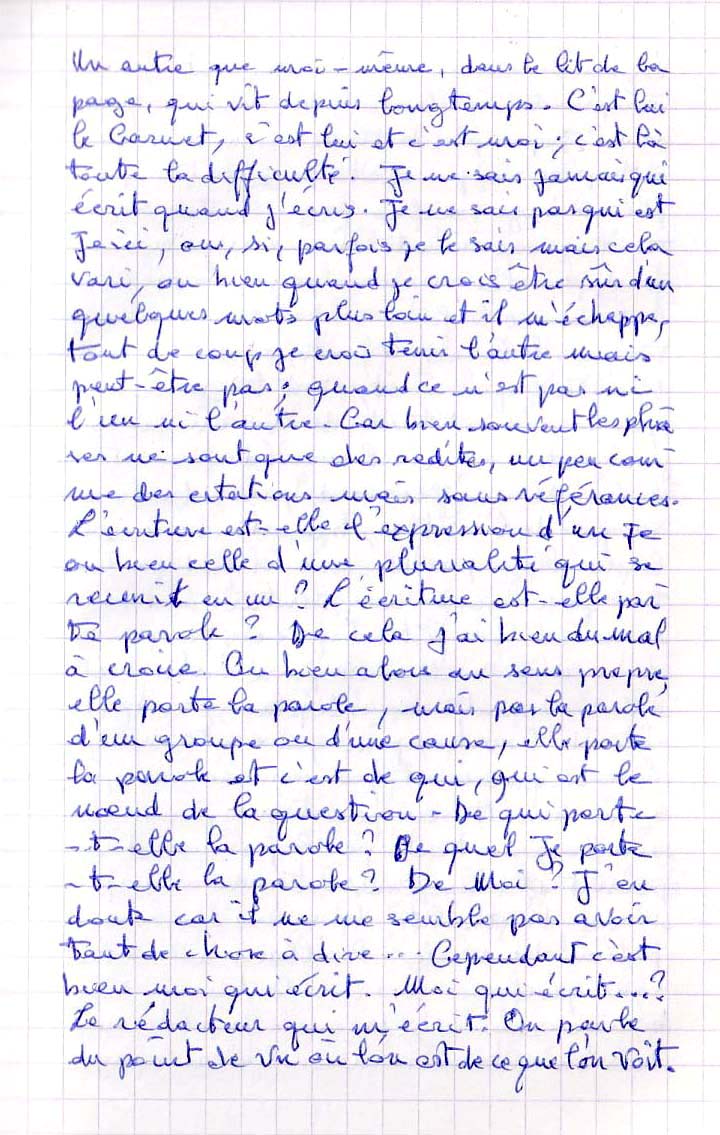 Un autre que moi-même, dans le lit de la
page, qui vit depuis longtemps. C'est lui
le Carnet, c'est lui et c'est moi; c'est là
toute la difficulté. Je ne sais jamais qui
écrit quand j'écris. Je ne sais pas qui est
Je ici, ou, si, parfois je le sais mais cela
vari, ou bien quand je crois être sûr d'un
quelques mots plus loin et il m'échappe,
tout de coup je crois tenir l'autre mais
peut-être pas; quand ce n'est pas ni
l'un ni l'autre. Car bien souvent les phra
ses ne sont que des redites, un peu com
me des citations mais sans références.
L'écriture est-elle l'expression d'un Je
ou bien celle d'une pluralité qui se
réunit en un? L'écriture est-elle par
té parole? De cela j'ai bien du mal
à croire. Ou bien alors au sens propre,
elle porte la parole, mais pas la parole
d'un groupe ou d'une cause, elle porte
la parole et c'est de qui, qui est le
noeud de la question - De qui porte
-t-elle la parole? De quel Je porte
-t-elle la parole? De Moi? J'en
doute car il ne me semble pas avoir
tant de chose à dire... Cependant c'est
bien moi qui écrit. Moi qui écrit...?
Le rédacteur qui m'écrit. On parle
du point de vu où l'on est de ce que l'on voit.